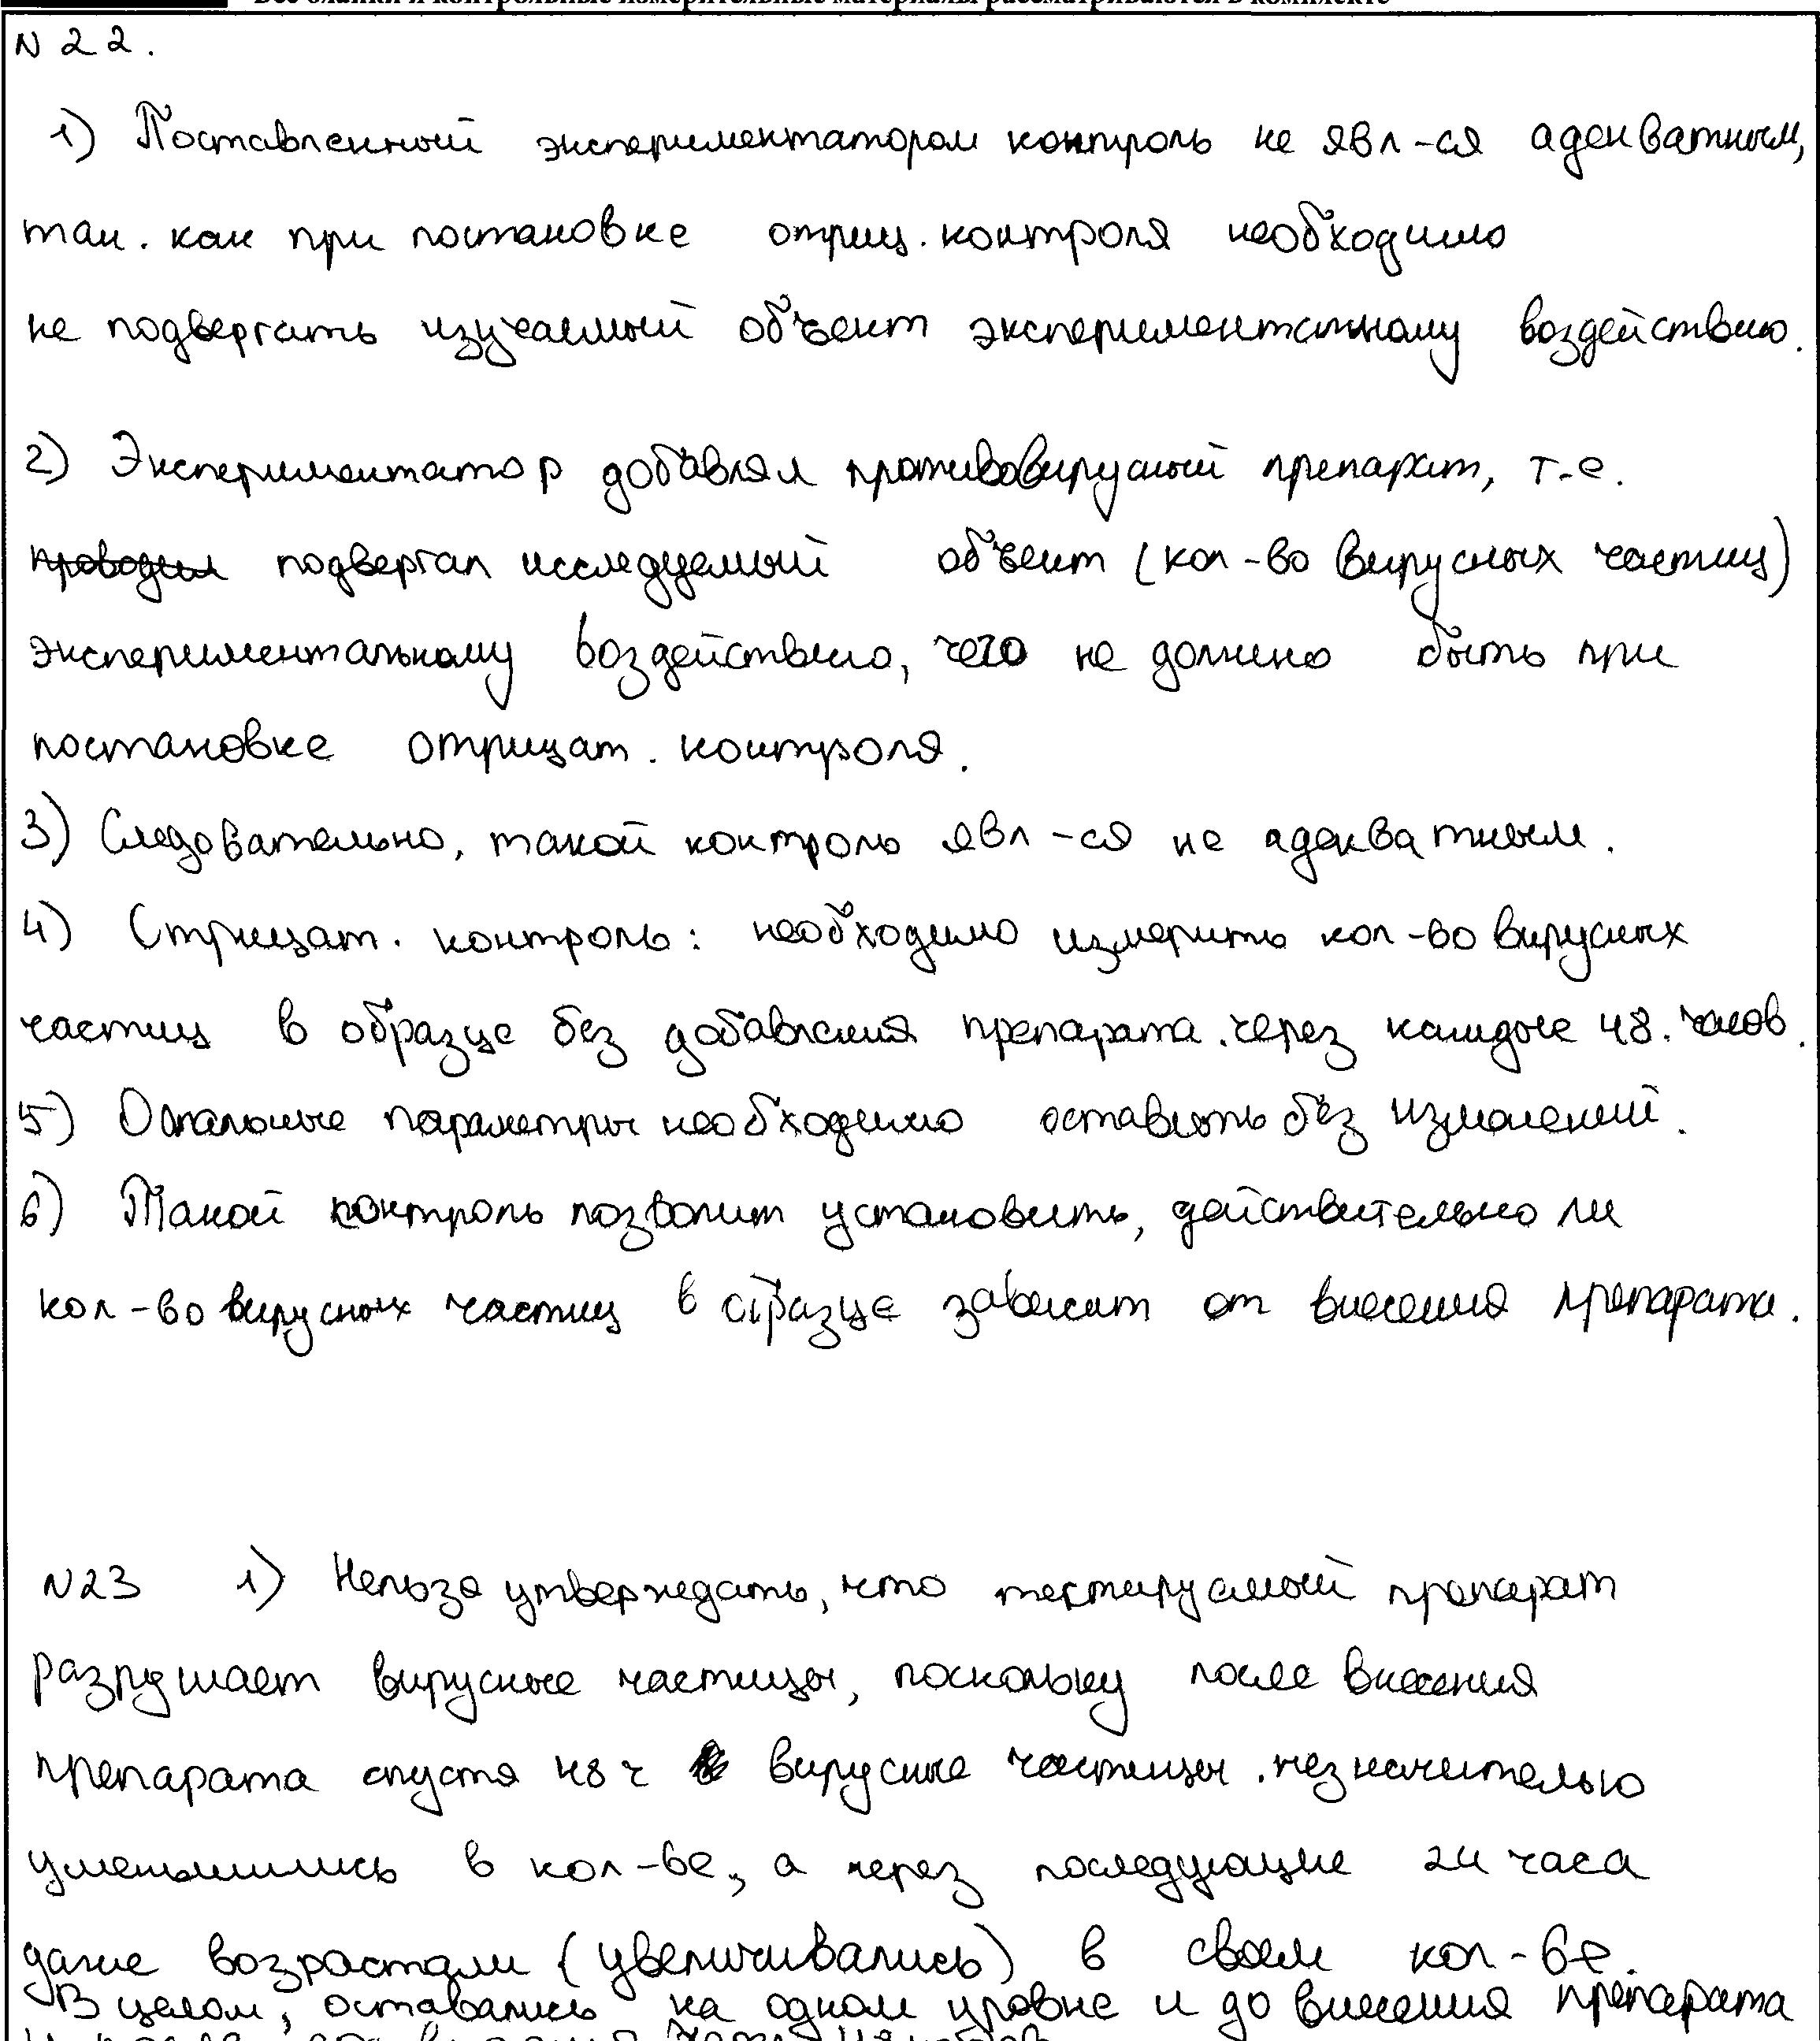 Все бланки и контрольные измерительные материалы рассматриваются в комплекте
N 22.
1) Поставленный экспериментатором контроль не явл-ся адекватным,
так. как при постановке отриц. контроля необходимо
не подвергать изучаемый объект экспериментальному воздействию.
2) Экспериментатор добавлял противовирусный препарат, т.е.
проводил подвергал исследуемый объект (кол-во вирусных частиц)
экспериментальному воздействию, чего не должно быть при
постановке отрицат. контроля.
3) Следовательно, такой контроль явл-ся не адекватным.
4) Отрицат. контроль: необходимо измерить кол-во вирусных
частиц в образце без добавления препарата. через каждые 48. часов.
5) Остальные параметры необходимо оставить без изменений.
6) Такой контроль позволит установить, действительно ли
кол-во вирусных частиц в образце зависит от внесения препарата.
N23 1) Нельзя утверждать, что тестируемый препарат
разрушает вирусные частицы, поскольку после внесения
препарата спустя 48 ч вирусные частицы. незначительно
уменьшились в кол-ве, а через последующие 24 часа
даже возрастали (увеличивались) в своем кол-ве.
В целом, оставались на одном уровне и до внесения препарата